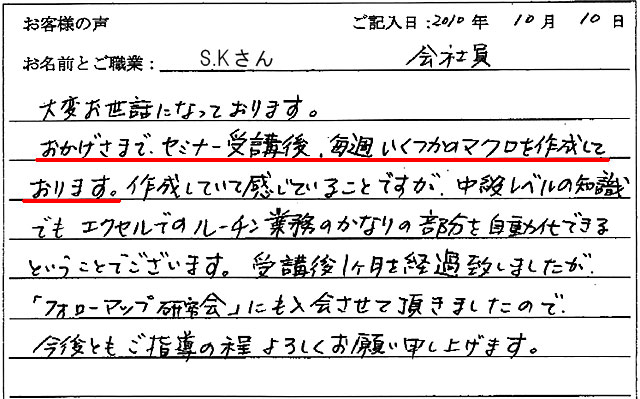 お客様の声 ご記入日:2010年 10月 10日
お名前とご職業: S.Kさん 会社員
大変お世話になっております。
おかげさまで、セミナー受講後、毎週いくつかのマクロを作成して
おります。作成していて感じていることですが、中級レベルの知識
でもエクセルでのルーチン業務のかなりの部分を自動化できる
ということでございます。受講後1ヶ月を経過致しましたが、
「フォローマップ研究会」にも入会させて頂きましたので、
今後ともご指導の程よろしくお願い申し上げます。